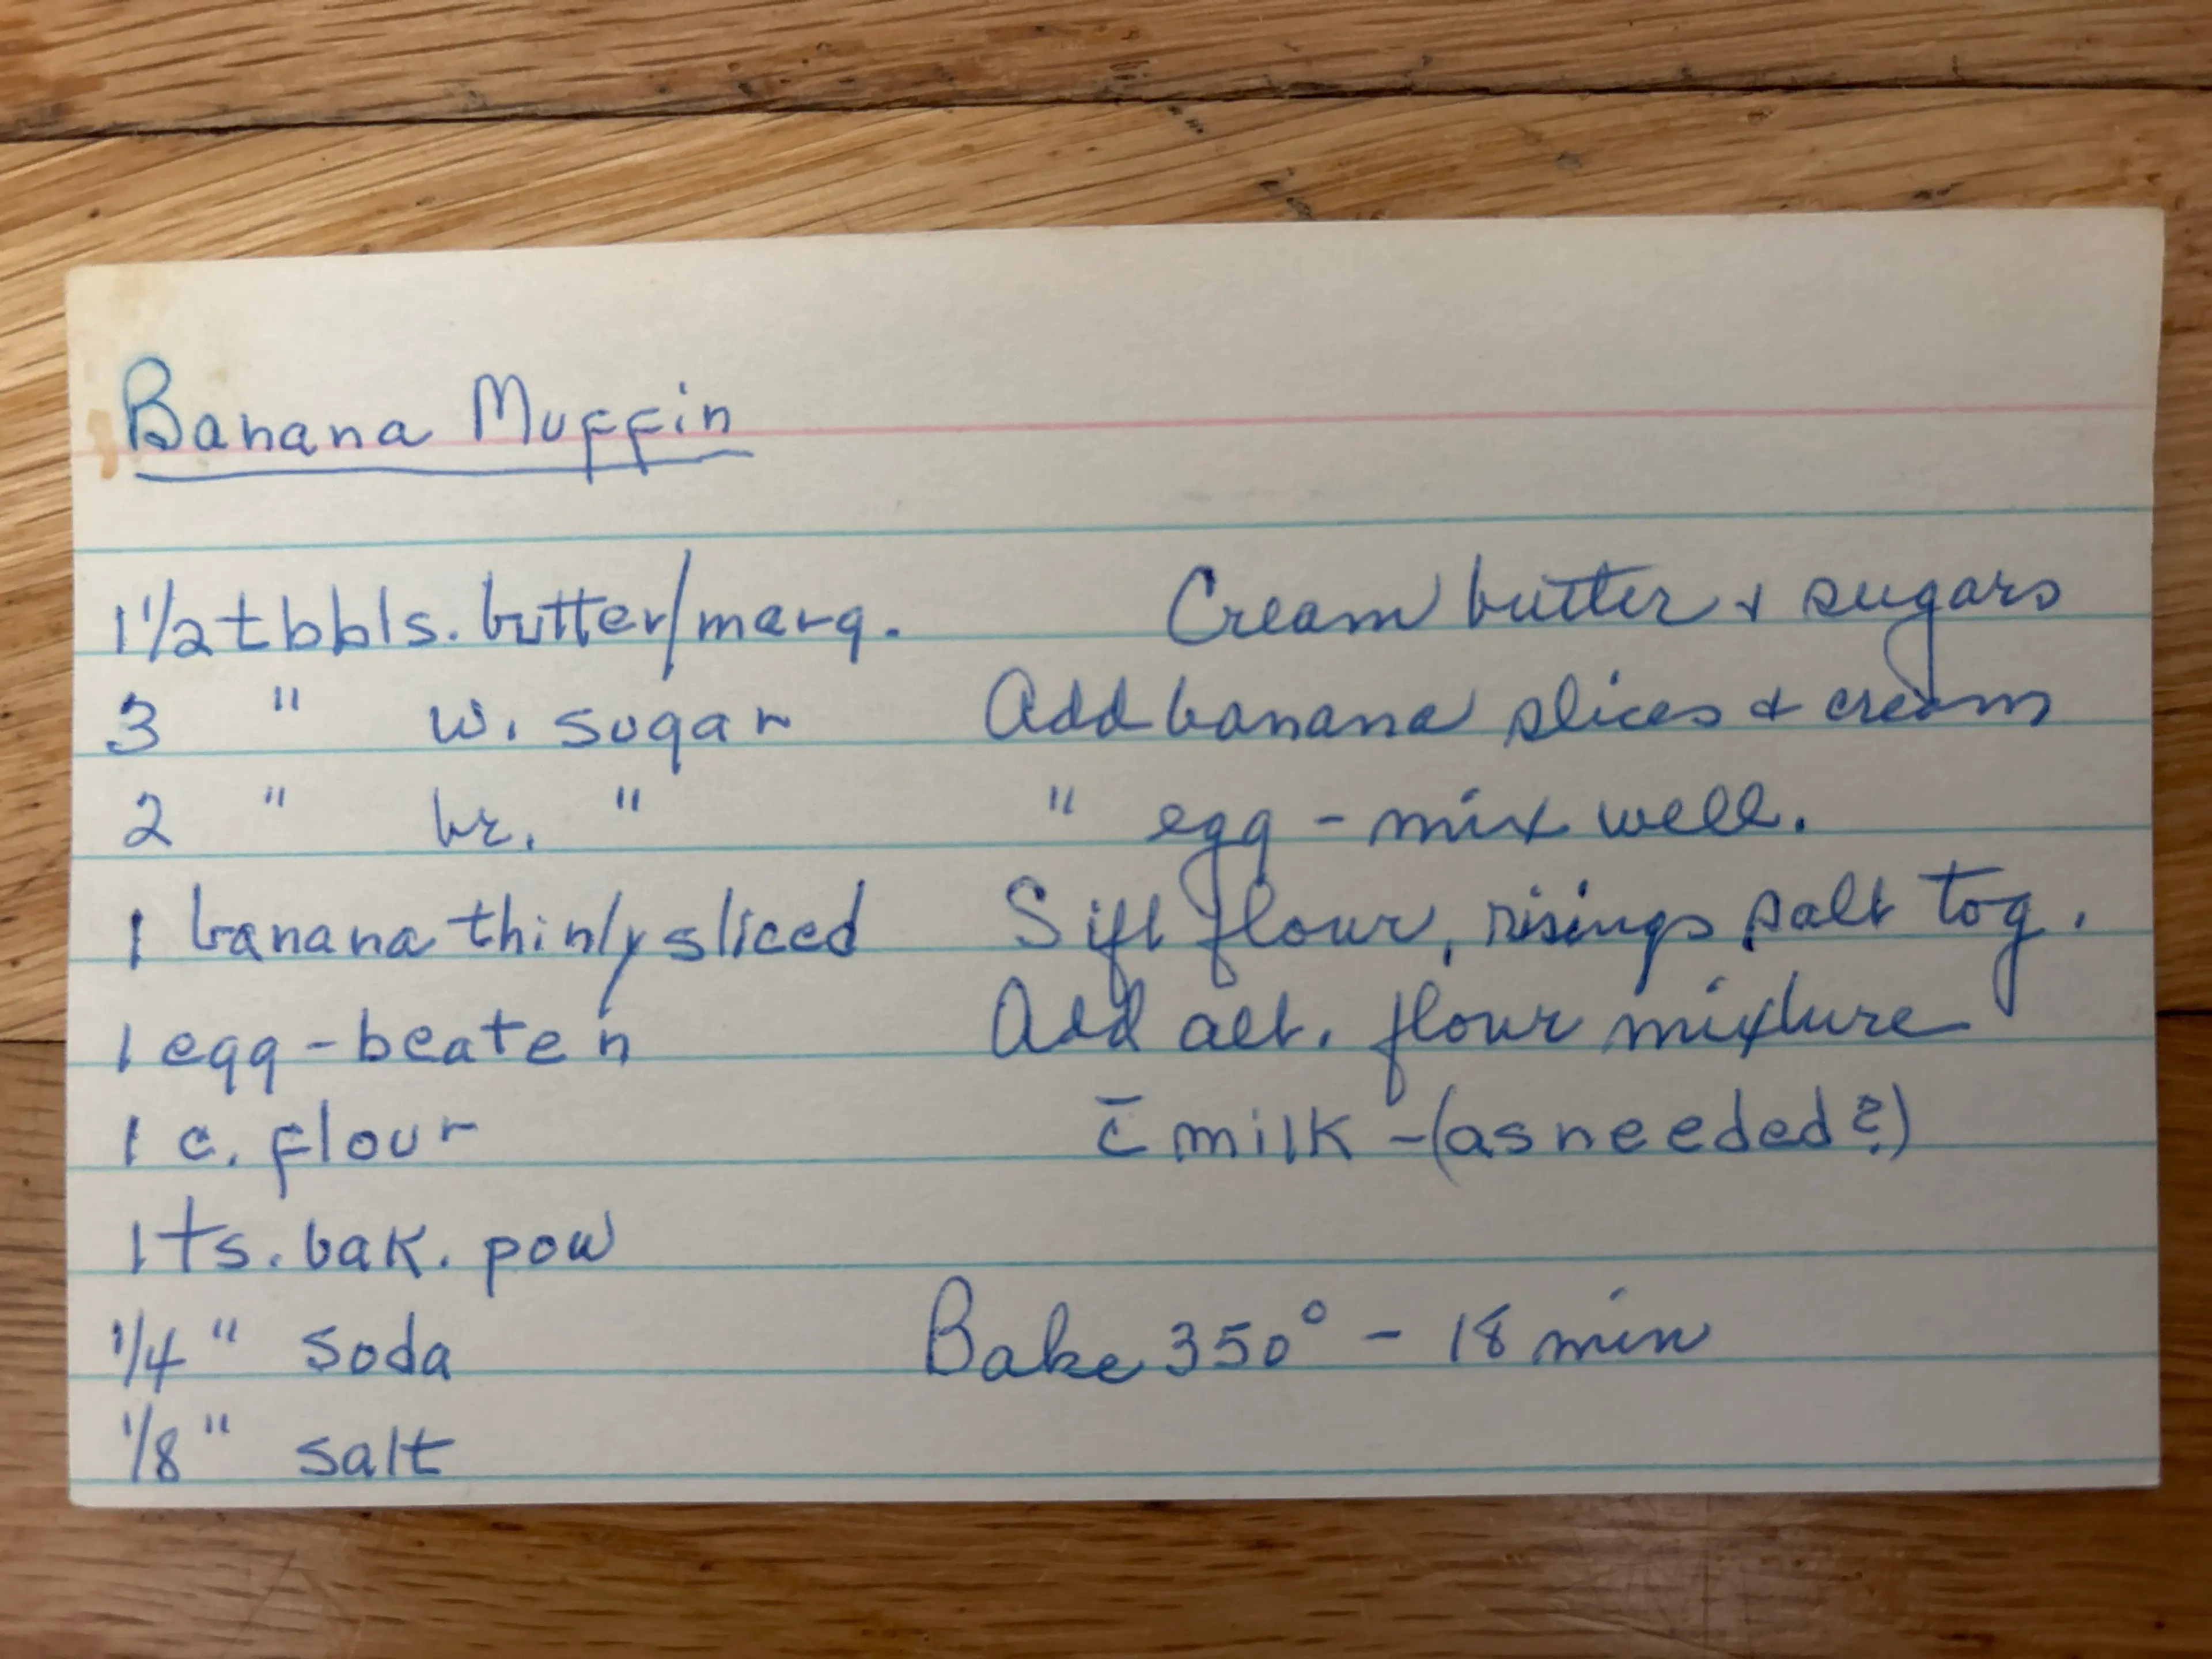 Banana Muffin
1 1/2 tbbls. butter/marg.
3 " w. sugar
2 " br. "
1 banana thinly sliced
1 egg - beaten
1 c. flour
1 ts. bak. pow
1/4 " soda
1/8 " salt
Cream butter & sugars
Add banana slices & cream
" egg - mix well.
Sift flour, risings salt tog.
Add alt. flour mixture
c̄ milk - (as needed?)
Bake 350° - 18 min